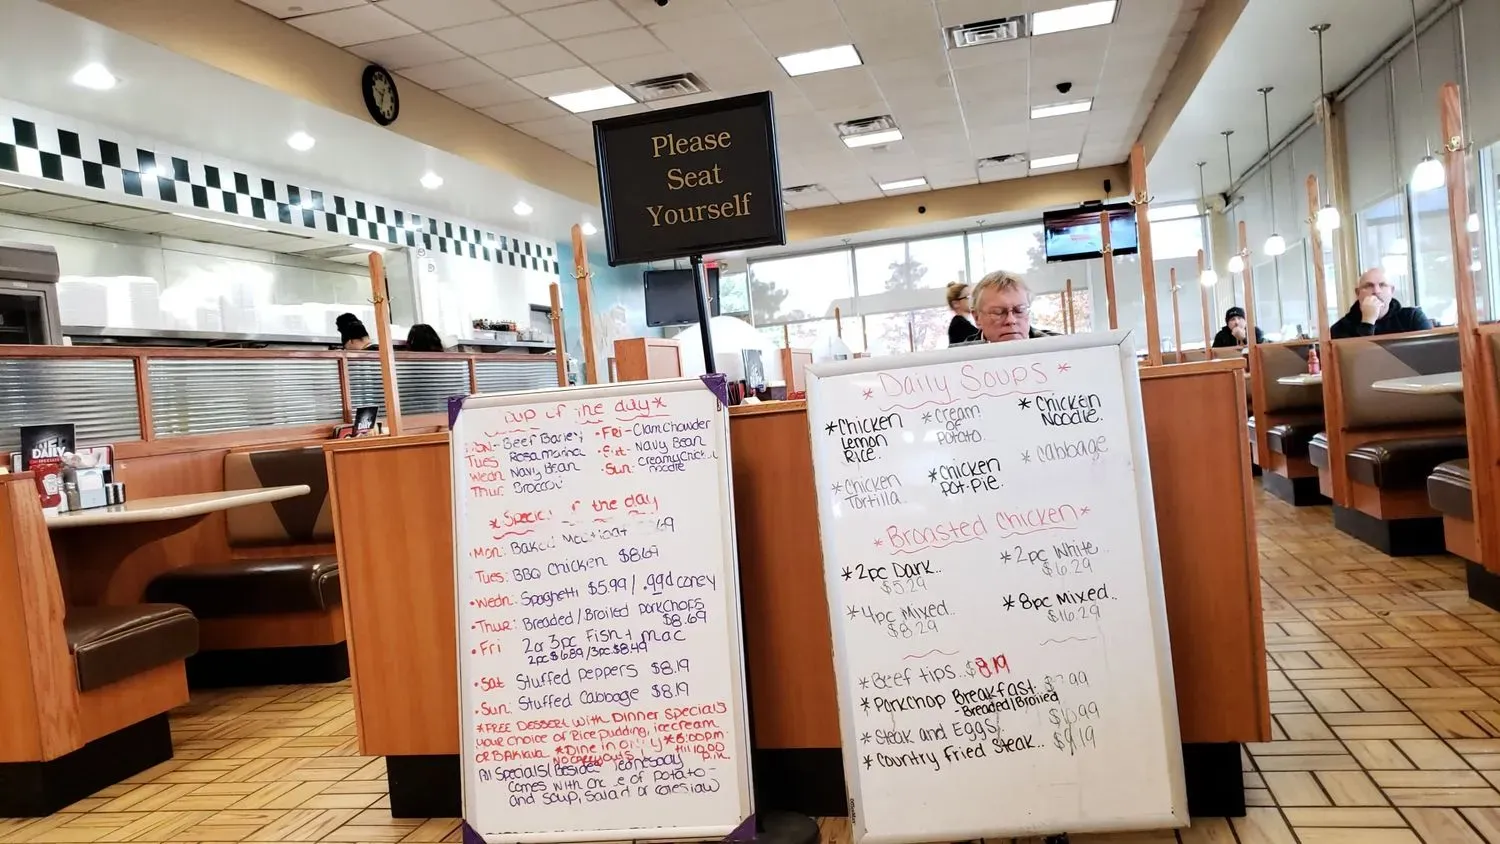 Please
Seat
Yourself
of the day*
Beef Barley
Tues
Wedn Navy Bean
Thur Broccoli
•Fri- Clam Chowder
Navy Bean
Sun: Creamy
noodle
the day
•Mon: Baked
Tues: BBQ Chicken $8.69
•Wedn: Spaghetti $5.99/.99¢ coney
•Thur: Breaded/Broiled Porkchops
$8.69
•Fri 2 or 3pc Fish + mac
2pc $6.89/3pc $8.49
•Sat Stuffed Peppers $8.19
•Sun: Stuffed Cabbage $8.19
*FREE Dessert with Dinner Specials
your choice of Rice pudding, ice cream
or Baklava *Dine in only *
till 10:00
No carryouts p.m.
All Specials/Besides
comes with of potato-
and soup, salad or coleslaw
*Daily Soups*
*Chicken
Lemon
Rice.
*Cream
of
Potato.
*Chicken
Noodle.
*Chicken
Tortilla..
*Chicken
Pot-Pie.
*Cabbage
*Broasted Chicken*
*2pc Dark..
$5.29
*2pc White..
$6.29
*4pc Mixed..
$8.29
*8pc Mixed..
$16.29
*Beef tips..$8.19
*Porkchop Breakfast..
-Breaded/Broiled
*Steak and Eggs
*Country Fried Steak.. $9.19